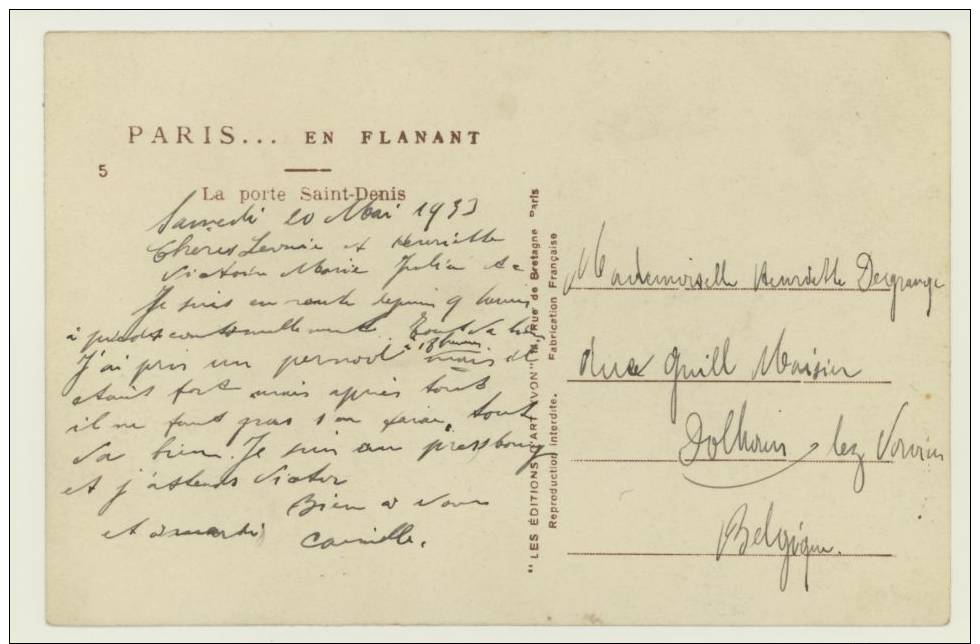 PARIS... EN FLANANT
5
La porte Saint-Denis
Samedi 20 Mai 1933
Cheres Leonie et Henriette
Victoire Marie Julien &c
Je suis en route depuis 9 heures
à pieds continuellement. Tout va bien
J'ai pris un pernod à 18 heures mais il
était fort mais après tout
il ne faut pas s'en faire, tout
va bien. Je suis au
et j'attends Victor
Bien à vous
et à mardi
Camille.
"LES ÉDITIONS D'ART "YVON" Rue de Bretagne Paris
Reproduction interdite. Fabrication Française
Mademoiselle Henriette Desgrange
Rue Guill Maisier
Dolhain lez Verviers
Belgique.